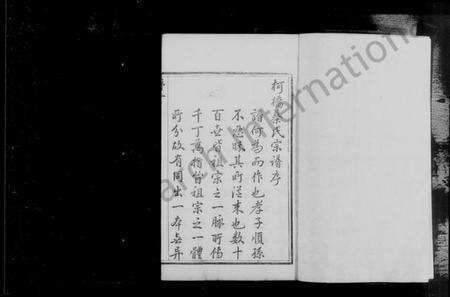 柯橋秦氏宗譜序
譜何爲而作也孝子慎孫
不忍昧其所從来也数十
百世皆祖宗之一脉所傳
千丁萬指皆祖宗之一體
所分故有同出一本無異
arch International